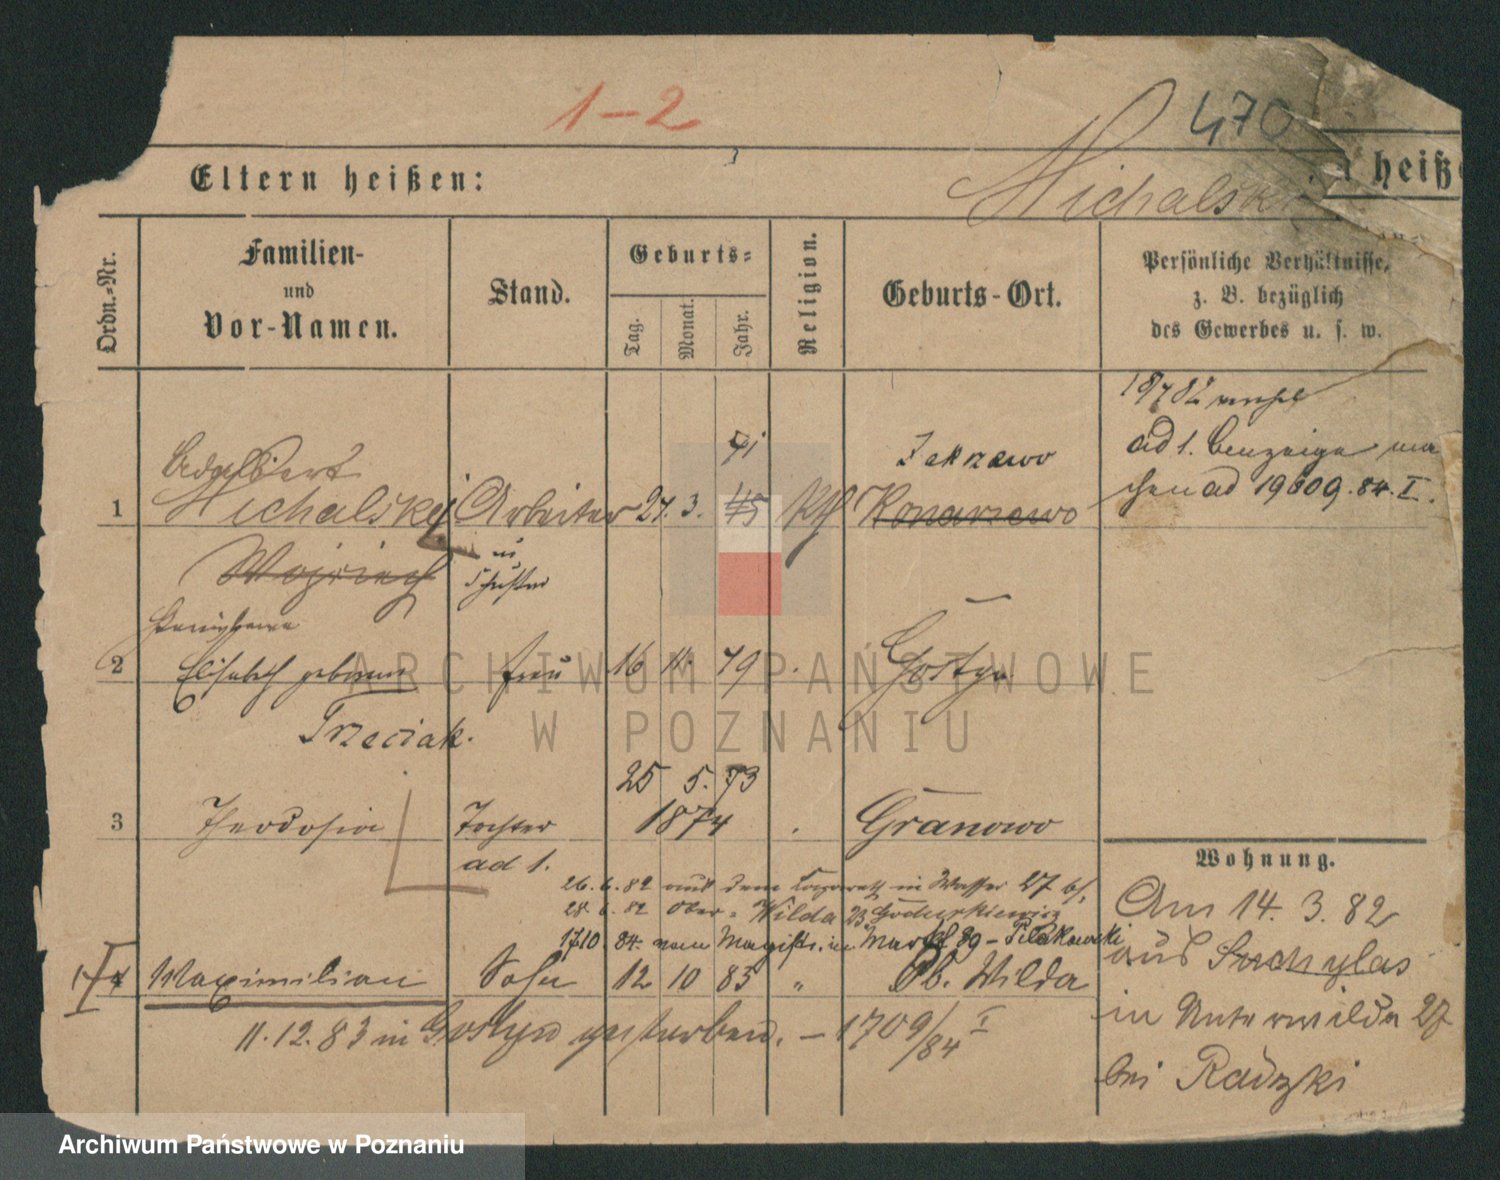 1-2
470
Eltern heißen:
Michalski
heiß
Ordn.-Nr.
Familien-
und
Vor-Namen.
Stand.
Geburts-
Tag.
Monat.
Jahr.
Religion.
Geburts-Ort.
Persönliche Verhältnisse,
z. B. bezüglich
des Gewerbes u. s. w.
Adalbert
1 Michalski Arbeiter 27. 3. 45 Kth Konarzewo
41
Zakrzewo
ad 1.
ad 84. I.
Wojciech
u
Schuster
2 Elisabeth geborene Frau 16 11. 49 Gostyn
Trzeciak.
25 5. 73
3 Theodosia Tochter 1874 Granowo
ad 1.
26. 6. 82 aus dem Lazareth in Wasser 27 bei
28. 6. 82 Ober-Wilda 23
17.10. 84. vom Magistr. in Markt 89 -
4 Maximilian Sohn 12 10 83 " Ob. Wilda
11. 12. 83 in Gostyn gestorben. - 1709/84 I
Wohnung.
Am 14. 3. 82
aus Suchylas
in Unterwilda 27
bei Radzki
ARCHIWUM PAŃSTWOWE
W POZNANIU
Archiwum Państwowe w Poznaniu